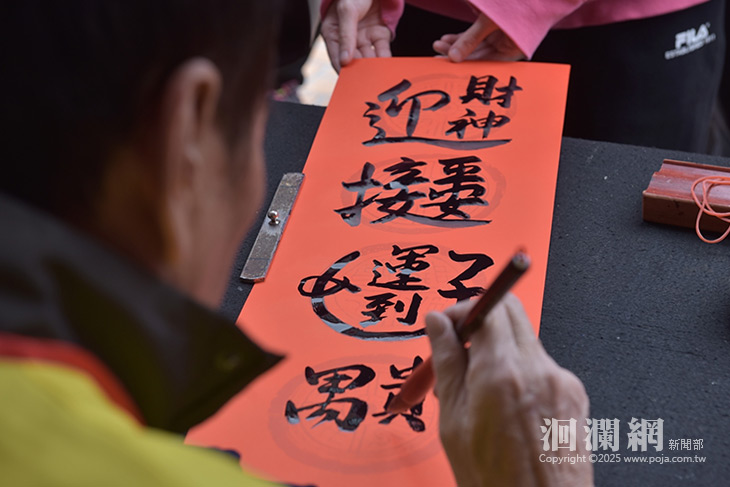 FILA
迎財神
接平安
好運到
萬貴
洄瀾網 新聞部
Copyright ©2025 www.poja.com.tw